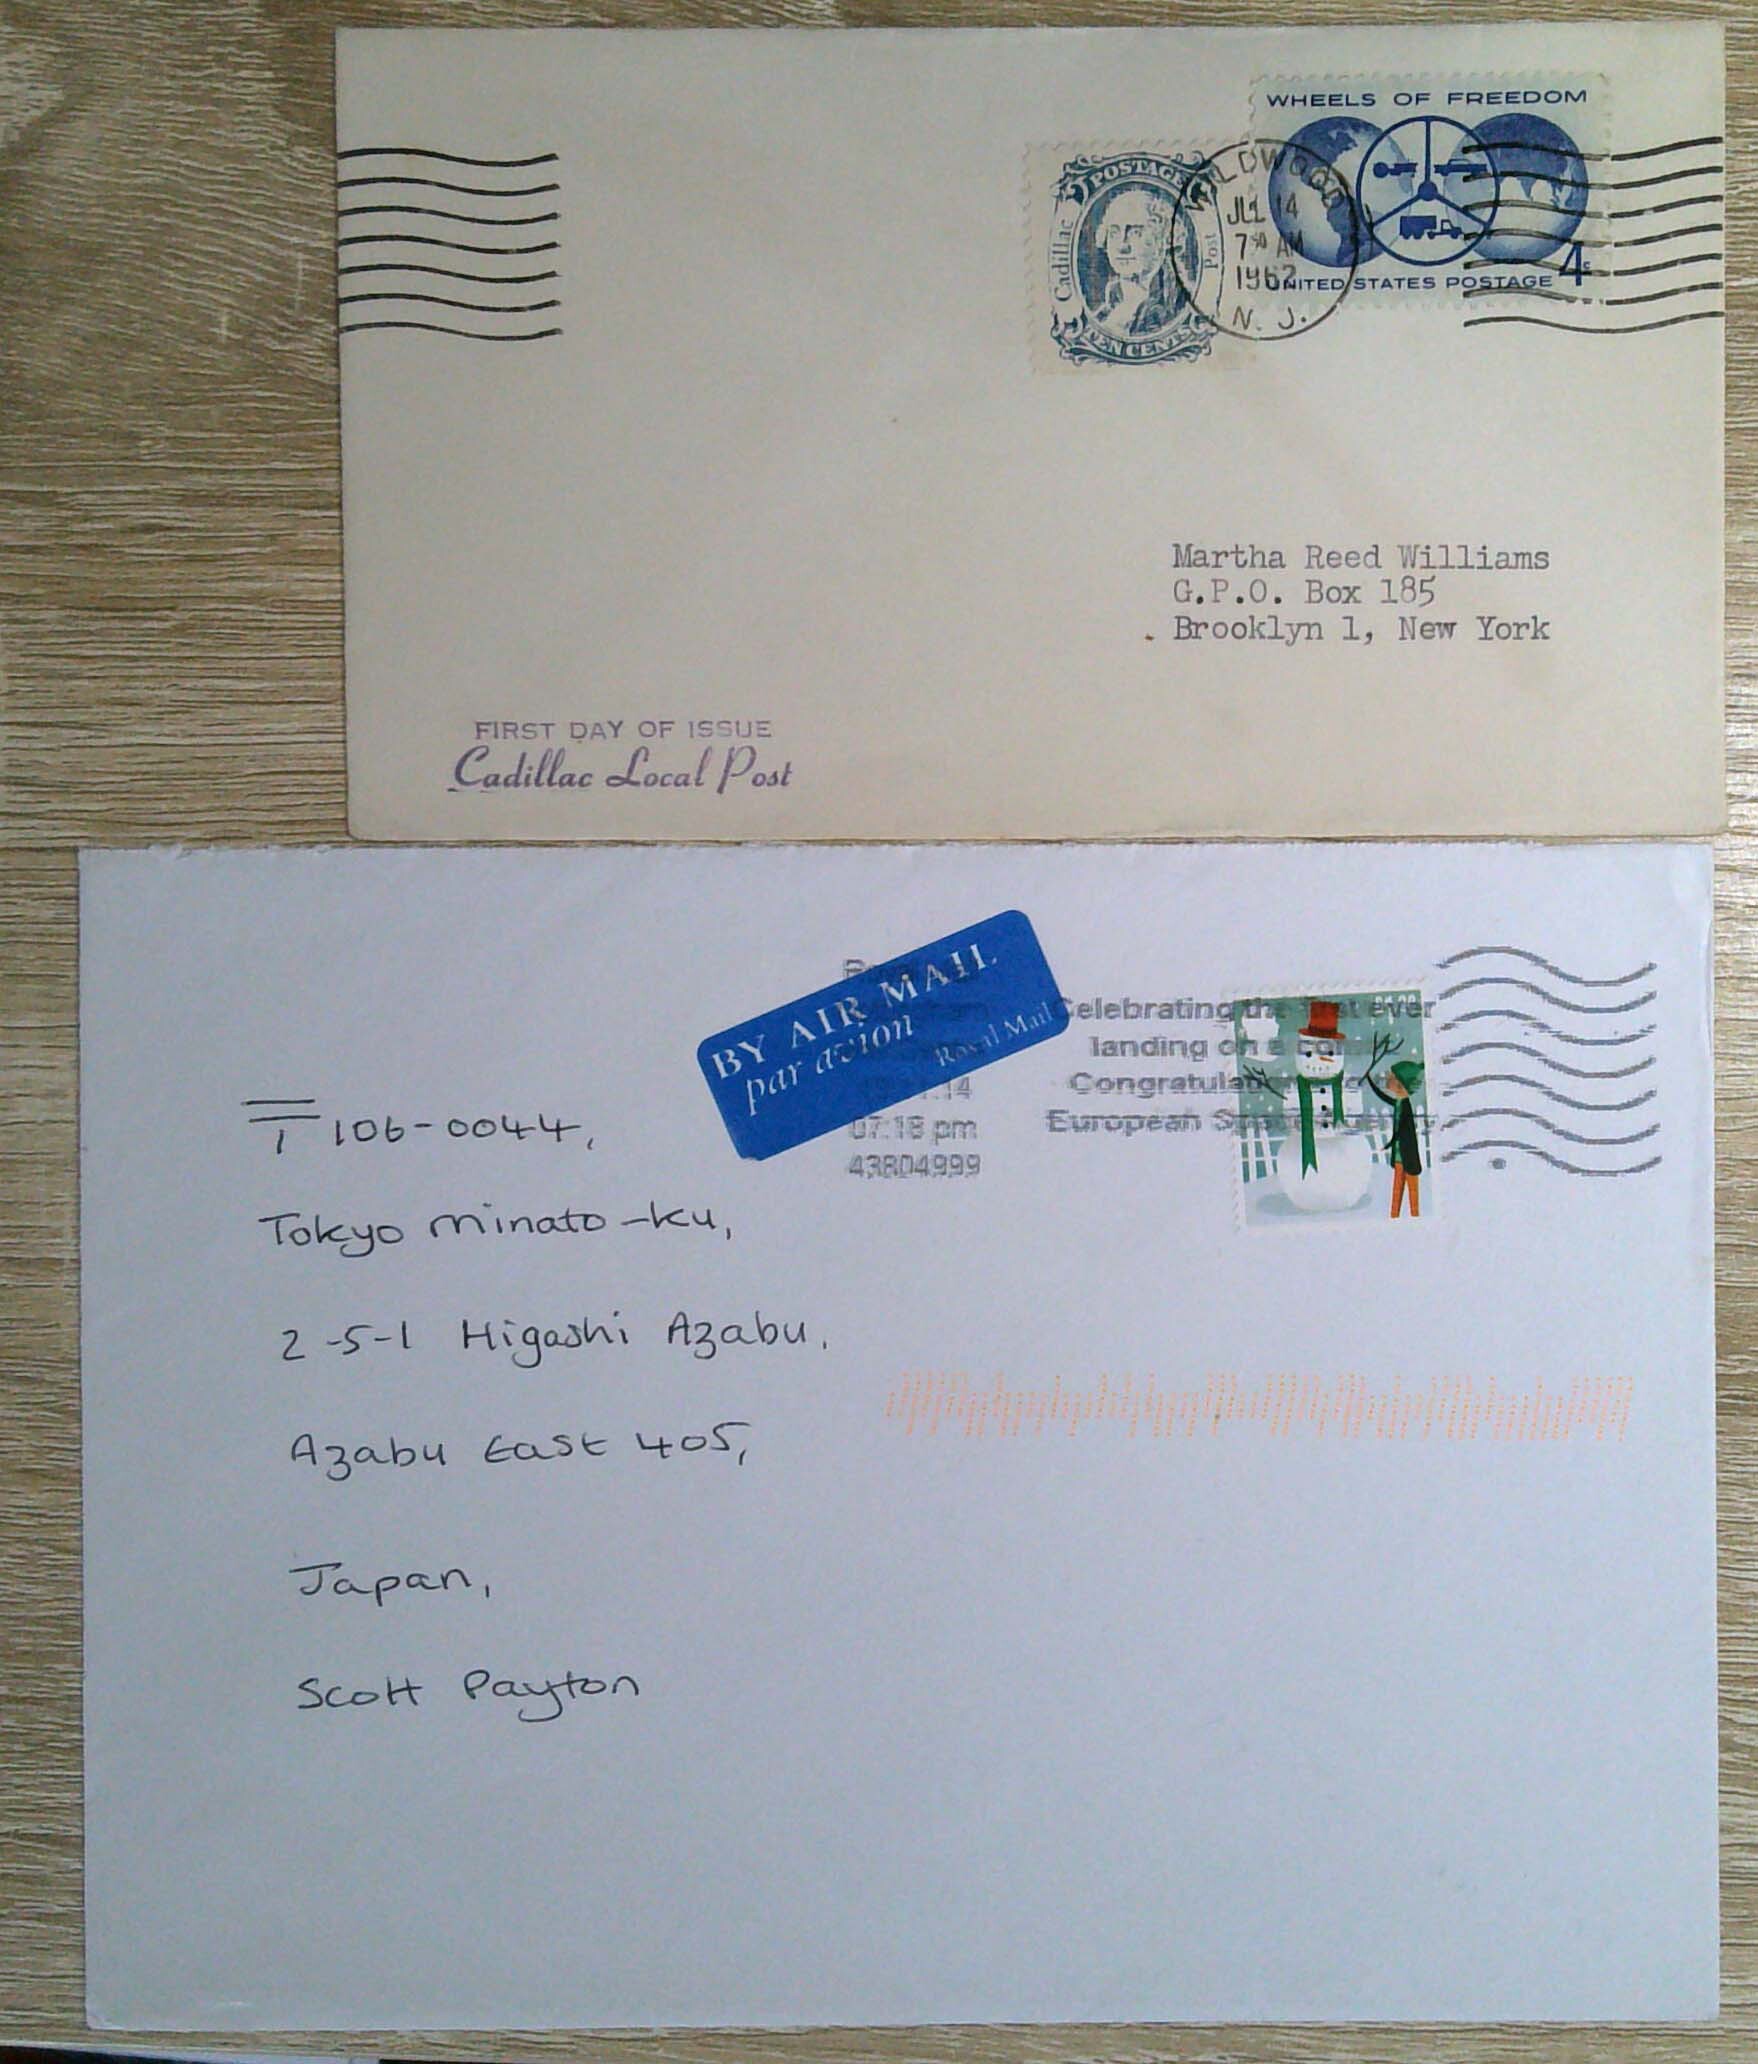 WHEELS OF FREEDOM
POSTAGE
Cadillac
Post
TEN CENTS
WILDWOOD
JUL 14
7 30 AM
1962
N. J.
UNITED STATES POSTAGE 4c
Martha Reed Williams
G.P.O. Box 185
Brooklyn 1, New York
FIRST DAY OF ISSUE
Cadillac Local Post
BY AIR MAIL
par avion
Royal Mail
07:18 pm
43804999
Celebrating the first ever
landing on a comet
Congratulations to the
European Space Agency
〒 106-0044,
Tokyo Minato-ku,
2-5-1 Higashi Azabu,
Azabu East 405,
Japan,
Scott Payton